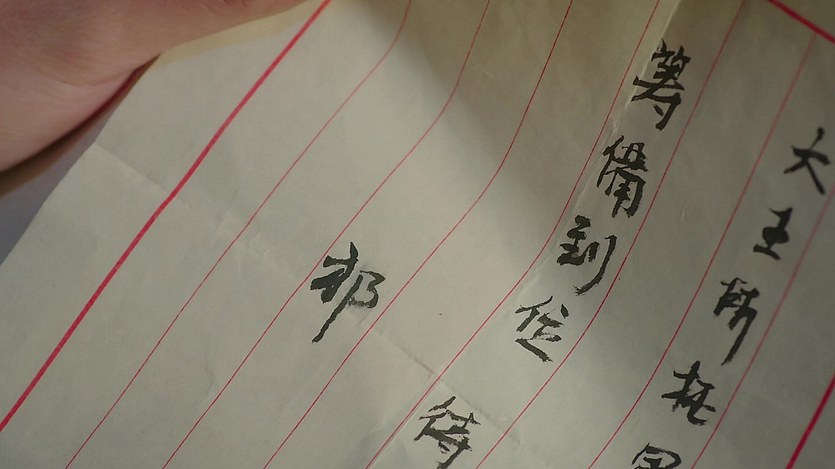 大王所托軍
籌備到位
待
邦